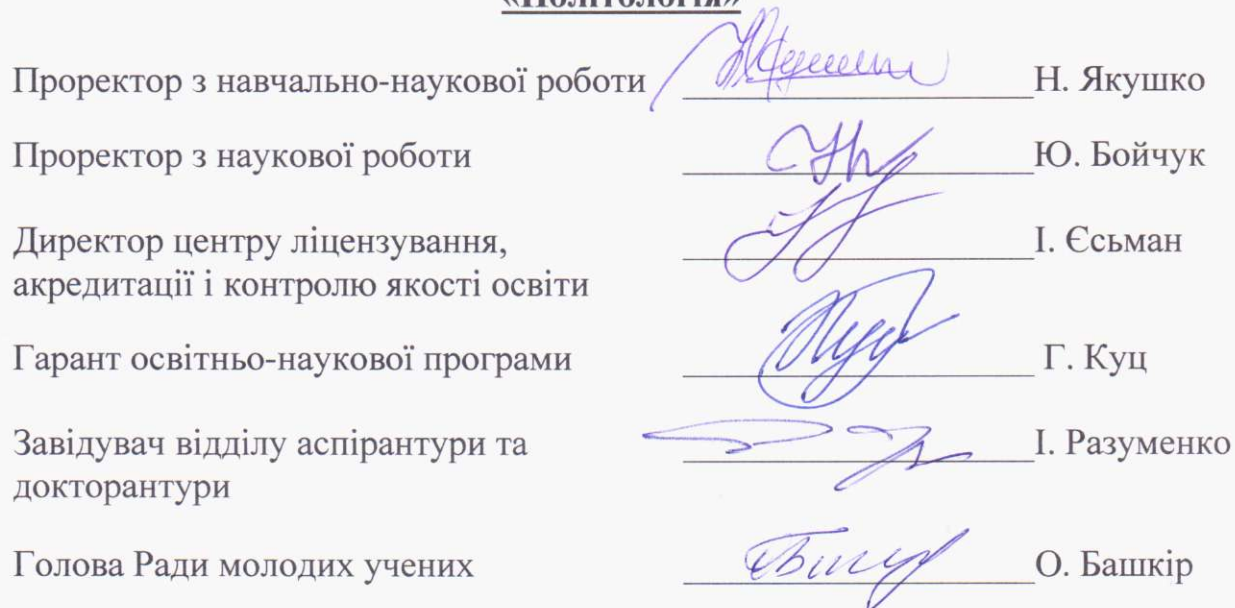 «Политологія»
Проректор з навчально-наукової роботи Н. Якушко
Проректор з наукової роботи Ю. Бойчук
Директор центру ліцензування, І. Єсьман
акредитації і контролю якості освіти
Гарант освітньо-наукової програми Г. Куц
Завідувач відділу аспірантури та І. Разуменко
докторантури
Голова Ради молодих учених О. Башкір